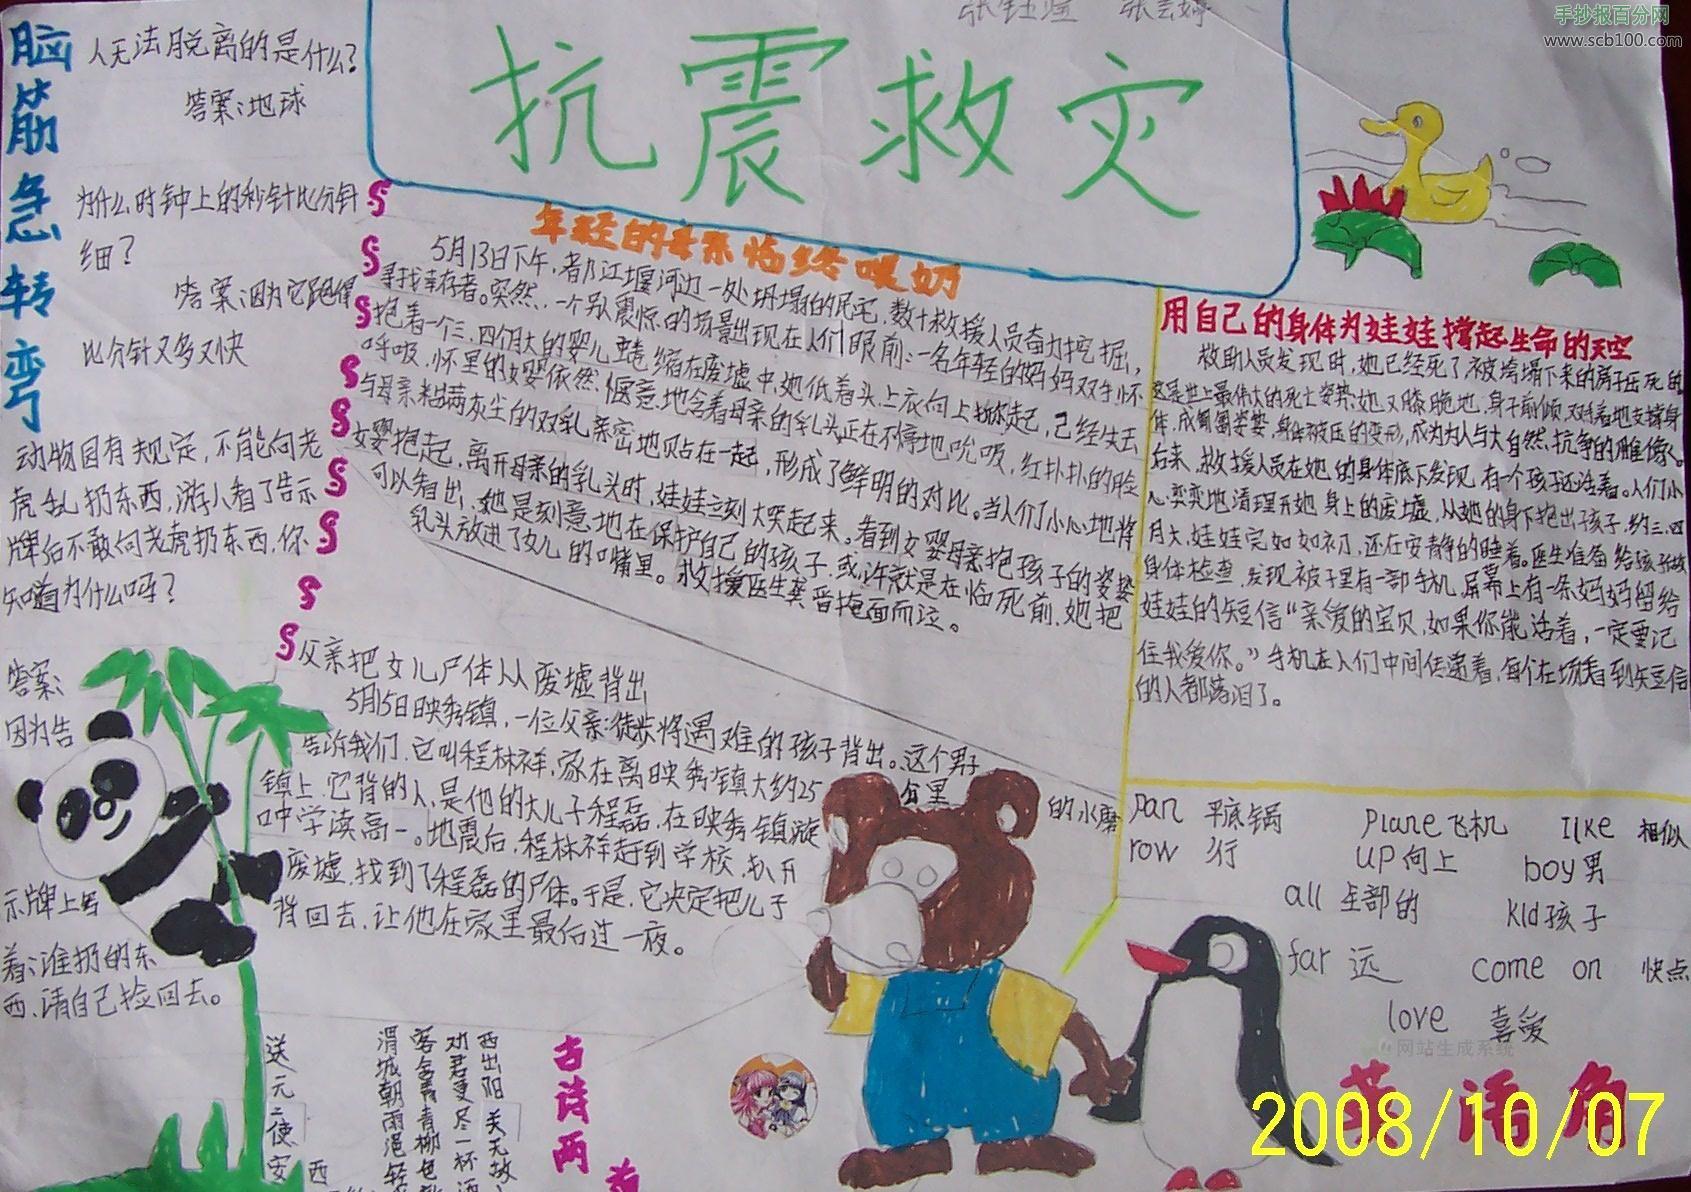 手抄报百分网
www.scb100.com
抗震救灾
脑筋急转弯
人无法脱离的是什么?
答案:地球
为什么时钟上的秒针比分针
细?
答案:因为它跑得
比分针又多又快
动物园有规定,不能向老
虎乱扔东西,游人看了告示
牌后不敢向老虎扔东西,你
知道为什么吗?
答案:
因为告
示牌上写
着:谁扔的东
西,请自己捡回去。
年轻的母亲临终喂奶
5月13日下午,都江堰河边一处坍塌的民宅,数十救援人员奋力挖掘,
寻找幸存者。突然,一个令人震惊的场景出现在人们眼前:一名年轻的妈妈双手怀
抱着一个三、四个月大的婴儿蜷缩在废墟中,她低着头,上衣向上掀起,已经失去
呼吸,怀里的女婴依然惬意地含着母亲的乳头正在不停地吮吸,红扑扑的脸
与母亲粘满灰尘的双乳亲密地贴在一起,形成了鲜明的对比。当人们小心地将
女婴抱起,离开母亲的乳头时,娃娃立刻大哭起来。看到女婴母亲抱孩子的姿势
可以看出,她是刻意地在保护自己的孩子,或许就是在临死前,她把
乳头放进了女儿的嘴里。救援医生龚晋掩面而泣。
父亲把女儿尸体从废墟背出
5月5日映秀镇,一位父亲徒步将遇难的孩子背出。这个男子
告诉我们,它叫程林祥,家在离映秀镇大约25公里的水磨
镇上,它背的人,是他的大儿子程磊,在映秀镇漩
口中学读高一。地震后,程林祥赶到学校,扒开
废墟,找到了程磊的尸体。于是,它决定把儿子
背回去,让他在家里最后过一夜。
用自己的身体为娃娃撑起生命的天空
救助人员发现时,她已经死了被垮塌下来的房子压死的
这是世上最伟大的死亡姿势:她双膝跪地,身子前倾,双手着地支撑身
体,成匍匐姿势,身体被压的变形,成为为人与大自然抗争的雕像。
后来,救援人员在她的身体底下发现,有一个孩子还活着。人们小
心奕奕地清理开她身上的废墟,从她的身下抱出孩子,约三、四
月大,娃娃完如如初,还在安静的睡着。医生准备给孩子做
身体检查,发现被子里有一部手机,屏幕上有一条妈妈留给
娃娃的短信“亲爱的宝贝,如果你能活着,一定要记
住我爱你。”手机在人们中间传递着,每个在场看到短信
的人都落泪了。
pan 平底锅 plane飞机 like 相似
row 行 up向上 boy男
all 全部的 kid孩子
far 远 come on 快点
love 喜爱
网站生成系统
英语角
2008/10/07
古诗两首
送元二使安西
渭城朝雨浥轻
客舍青青柳色
劝君更尽一杯酒
西出阳关无故